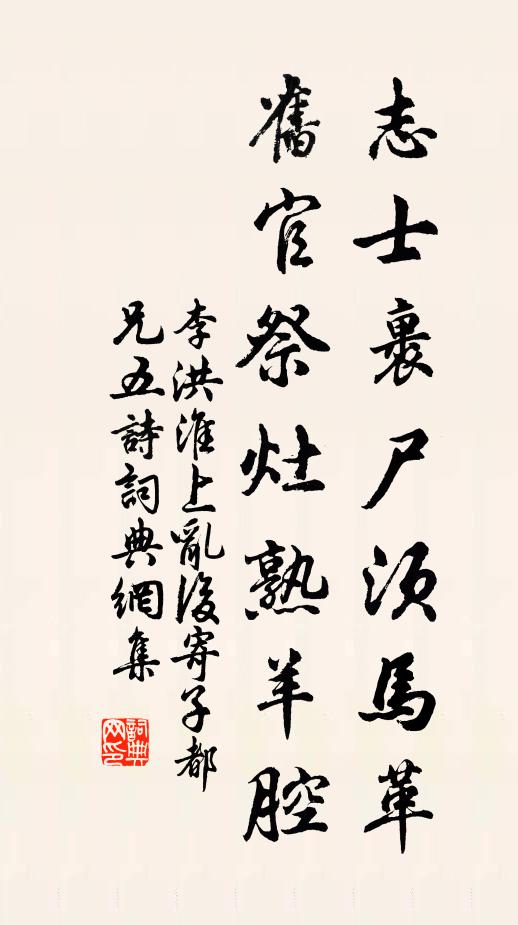 志士裹尸須馬革
舊官祭灶熟羊腔
李洪淮上亂後寄子都
兄五詩詞典網集
詞典
网印